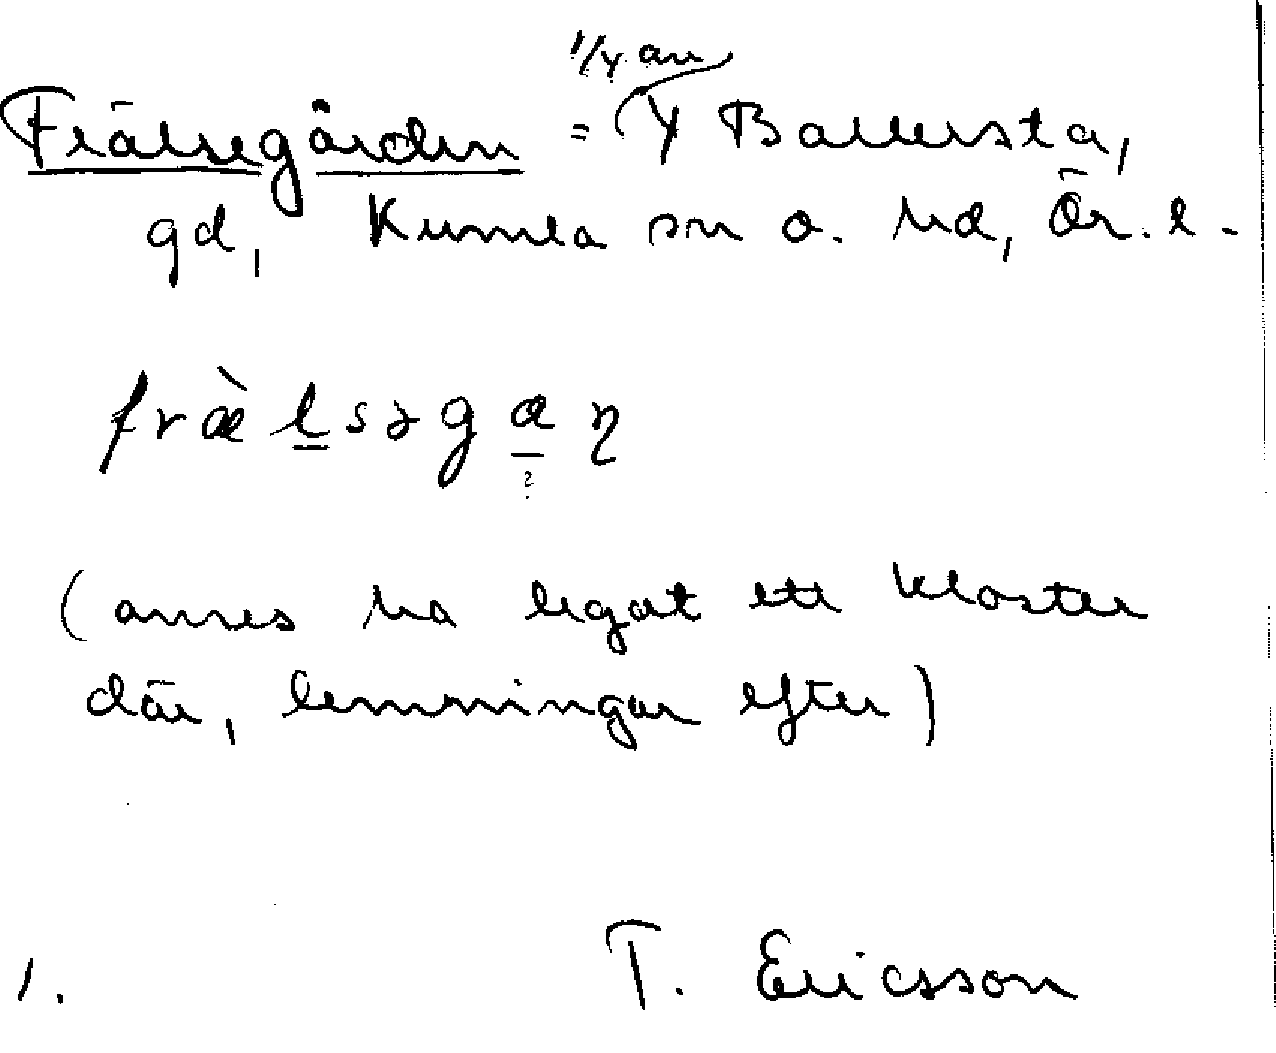 1/4 av
Frälsegården = Y Ballersta,
gd, Kumla sn o. hd, Ör. l.
fràlsəgaɳ
?
(anses ha legat ett kloster
där, lemningar efter)
1. T. Ericsson